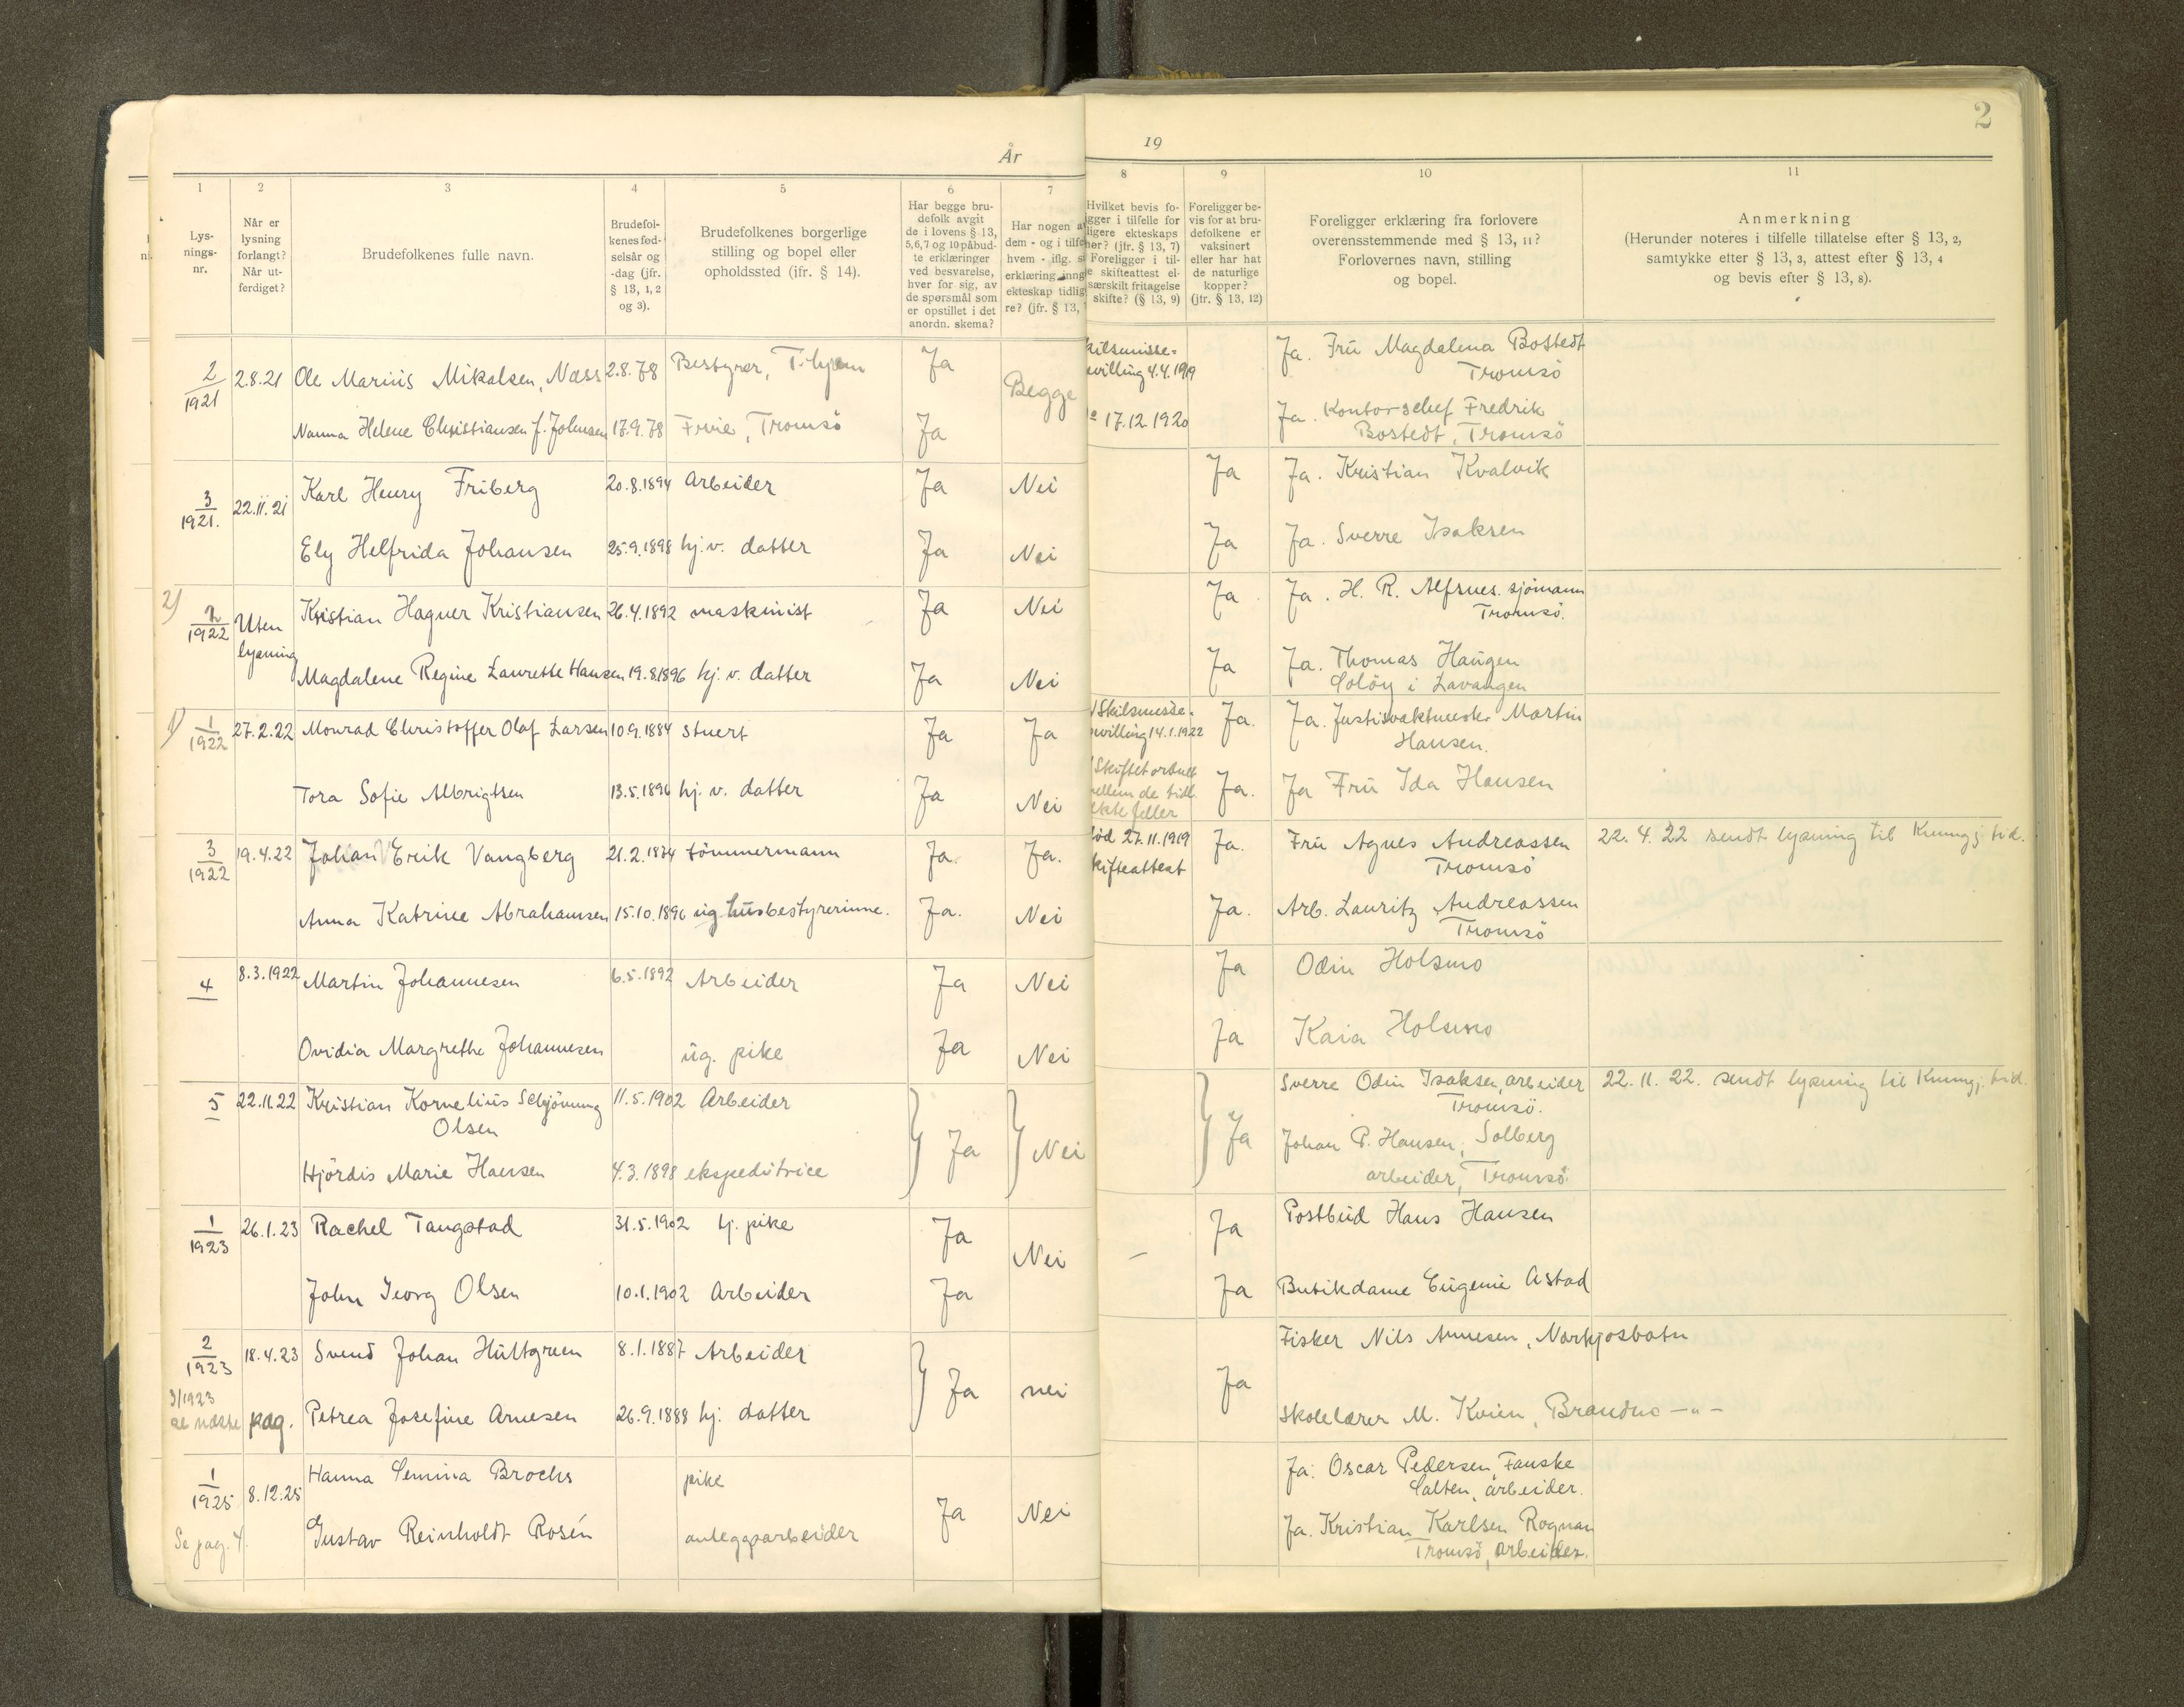 2
År 19
1
Lys-
nings-
nr.
2
Når er
lysning
forlangt?
Når ut-
ferdiget?
3
Brudefolkenes fulle navn.
4
Brudefol-
kenes fød-
selsår og
-dag (jfr.
§ 13, 1, 2
og 3).
5
Brudefolkenes borgerlige
stilling og bopel eller
opholdssted (jfr. § 14).
6
Har begge bru-
defolk avgit
de i lovens § 13,
5, 6, 7 og 10 påbud-
te erklæringer
ved besvarelse,
hver for sig, av
de spørsmål som
er opstillet i det
anordn. skema?
7
Har nogen a
dem - og i tilfe
hvem - iflg. s
erklæring inng
ekteskap tidlig
re? (jfr. § 13,
8
Hvilket bevis fo-
igger i tilfelle for
ligere ekteskaps
hør? (jfr. § 13, 7)
Foreligger i til-
e skifteattest el-
særskilt fritagelse
skifte? (§ 13, 9)
9
Foreligger be-
vis for at bru-
defolkene er
vaksinert
eller har hat
de naturlige
kopper?
(jfr. § 13, 12)
10
Foreligger erklæring fra forlovere
overensstemmende med § 13, 11?
Forlovernes navn, stilling
og bopel.
11
Anmerkning
(Herunder noteres i tilfelle tillatelse efter § 13, 2,
samtykke efter § 13, 3, attest efter § 13, 4
og bevis efter § 13, 8).
2/1921 2.8.21 Ole Marius Mikalsen, Næss 2.8.78 Bestyrer, Ja Begge kilsmisse-
villing 4.4.1919 Ja. Fru Magdalena Bostedt
Tromsö
Nanna Helene Christiansen f. Johnsen 17.9.78 Frue, Tromsö Ja 17.12.1920 Ja. Kontorschef Fredrik
Bostedt, Tromsö
3/1921. 22.11.21 Karl Henry Friberg 20.8.1894 Arbeider Ja Nei Ja Ja. Kristian Kvalvik
Ely Helfrida Johansen 25.9.1898 hj.v. datter Ja Nei Ja Ja. Sverre Isaksen
2) 2/1922 Uten
lysning Kristian Hagner Kristiansen 26.4.1892 maskinist Ja Nei Ja Ja. H. R. Alfsnes. sjömann
Tromsö.
Magdalene Regine Laurette Hansen 19.8.1896 hj. v. datter Ja Nei Ja Ja. Thomas Haugen
Solöy i Lavangen
1) 1/1922 27.2.22 Monrad Christoffer Olaf Larsen 10.9.1884 stuert Ja Ja Skilsmisse-
villing 14.1.1922 Ja. Ja. Justisvaktmester Martin
Hansen.
Tora Sofie Albrigtsen 13.5.1896 hj. v. datter Ja Nei Skiftet ordnet
mellem de tidl.
ektefeller Ja. Ja Fru Ida Hansen
3/1922 19.4.22 Johan Erik Vangberg 21.2.1874 tömmermann Ja. Ja. 27.11.1919
skifteattest Ja. Fru Agnes Andreassen
Tromsö 22.4.22 sendt lysning til Kunngj. tid.
Anna Katrine Abrahamsen 15.10.1896 ug. husbestyrerinne. Ja. Nei Ja. Arb. Lauritz Andreassen
Tromsö
4 8.3.1922 Martin Johannesen 6.5.1892 Arbeider Ja Nei Ja Odin Holsmo
Ovidia Margrethe Johannesen ug. pike Ja Nei Ja Kaia Holsmo
5 22.11.22 Kristian Kornelius Schjönning
Olsen 11.5.1902 Arbeider Ja Nei Ja Sverre Odin Isaksen, arbeider
Tromsö. 22.11.22. sendt lysning til Kunngj. tid.
Hjördis Marie Hansen 4.3.1898 ekspeditrice Johan P. Hansen, Solberg
arbeider, Tromsö
1/1923 26.1.23 Rachel Tangstad 31.5.1902 hj. pike Ja Nei — Ja Postbud Hans Hansen
John Georg Olsen 10.1.1902 Arbeider Ja Ja Butikdame Eugenie Astad
2/1923 18.4.23 Svend Johan Hultgreen 8.1.1887 Arbeider Ja nei Ja Fisker Nils Arnesen, Nordkjosbotn
3/1923
se næste pag. Petrea Josefine Arnesen 26.9.1888 hj. datter Skolelærer M. Kvien, Brandmo —"—
1/1925 8.12.25 Hanna Semina Brochs pike Ja Nei Ja: Oscar Pedersen, Fauske
Salten, arbeider.
Se pag. 4. Gustav Reinholdt Rosén anleggsarbeider Ja. Kristian Karlsen Rognan
Tromsö, arbeider.